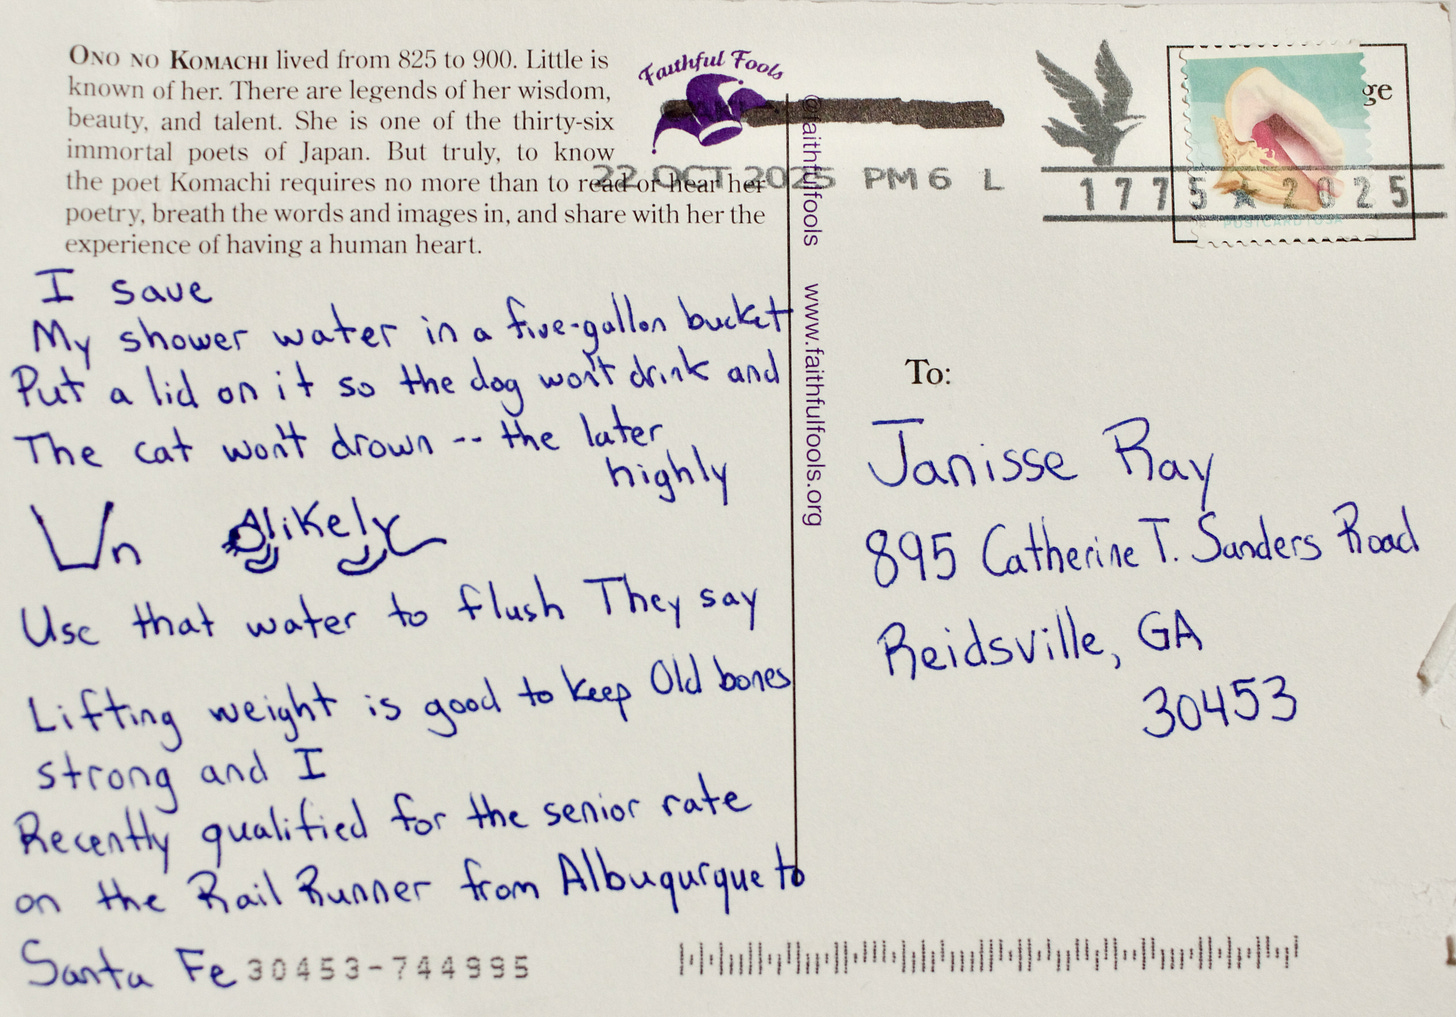 ONO NO KOMACHI lived from 825 to 900. Little is
known of her. There are legends of her wisdom,
beauty, and talent. She is one of the thirty-six
immortal poets of Japan. But truly, to know
the poet Komachi requires no more than to read or hear her
poetry, breath the words and images in, and share with her the
experience of having a human heart.
Faithful Fools
22 OCT 2025 PM 6 L
1775 ★ 2025
ge
POSTCARD USA
@faithfulfools www.faithfulfools.org
I save
My shower water in a five-gallon bucket
Put a lid on it so the dog won't drink and
The cat won't drown -- the later
highly
Un likely
Use that water to flush They say
Lifting weight is good to keep Old bones
strong and I
Recently qualified for the senior rate
on the Rail Runner from Albuqurque to
Santa Fe
30453-744995
To:
Janisse Ray
895 Catherine T. Sanders Road
Reidsville, GA
30453